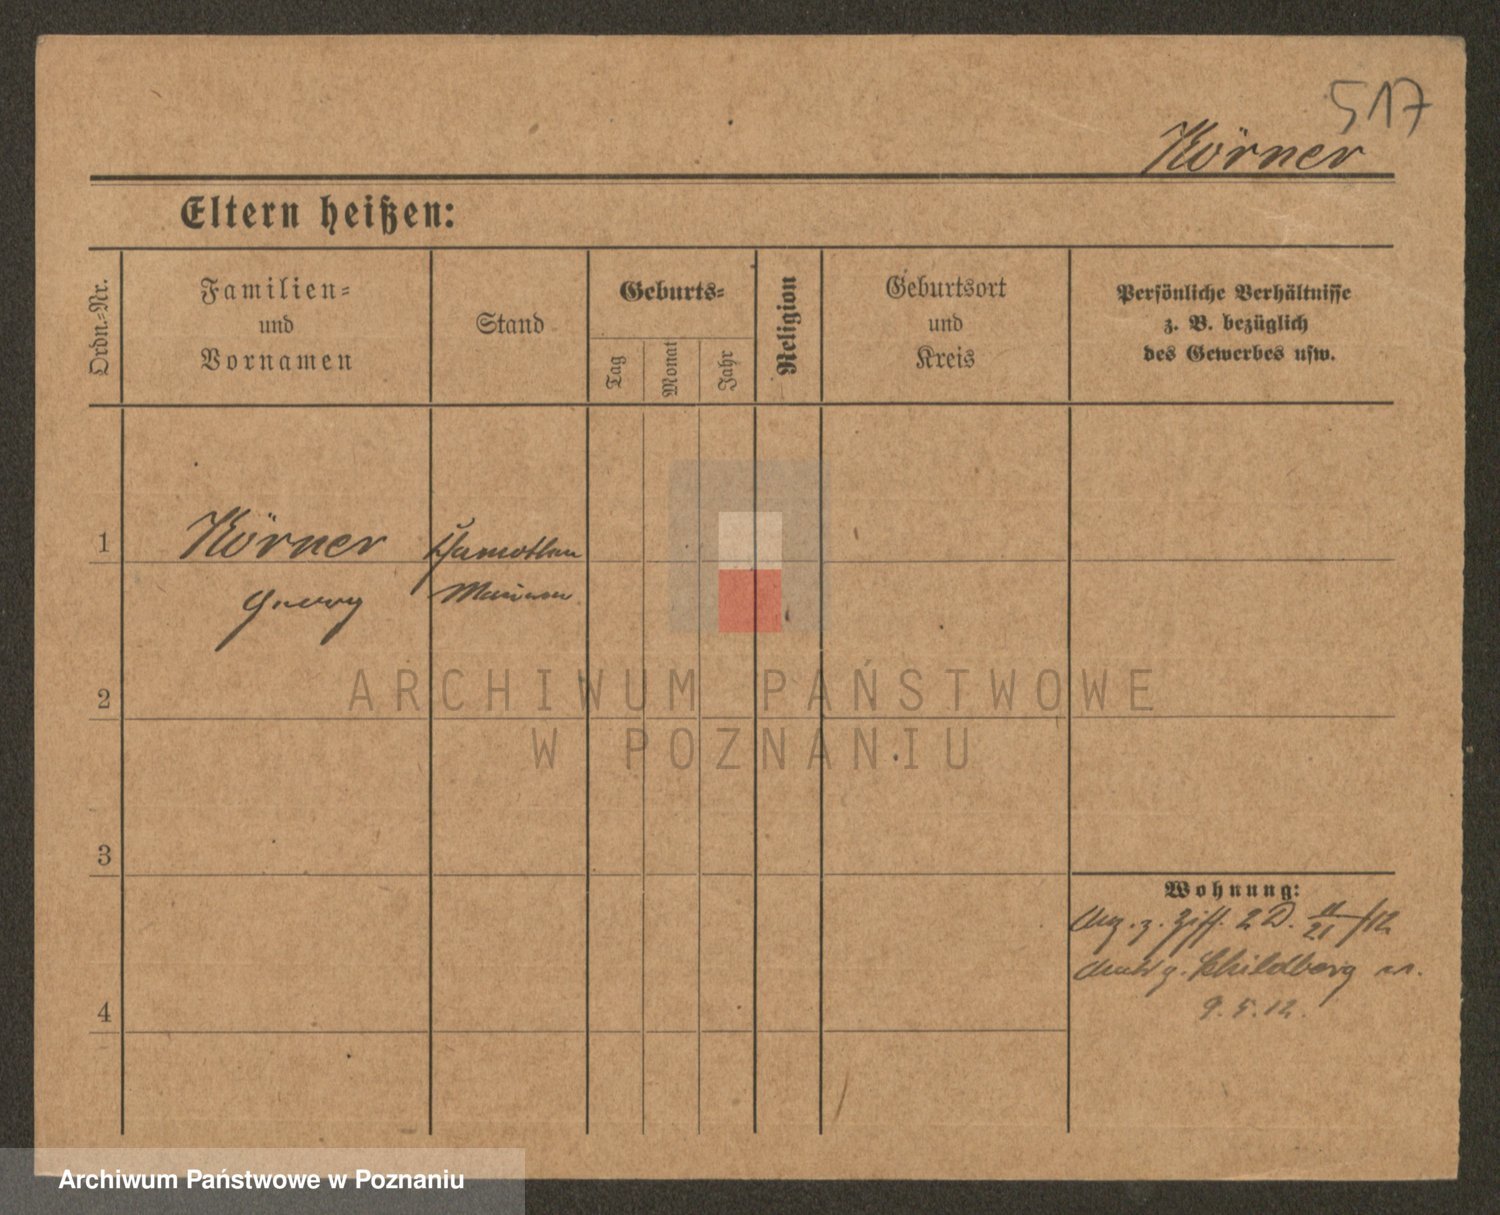 517
Körner
Eltern heißen:
Ordn.-Nr.
Familien-
und
Vornamen
Stand
Geburts-
Tag
Monat
Jahr
Religion
Geburtsort
und
Kreis
Persönliche Verhältnisse
z. B. bezüglich
des Gewerbes usw.
1
Körner
Georg
2
ARCHIWUM PAŃSTWOWE
W POZNANIU
3
Wohnung:
z. Ziff. 2 D. 11/21 /12
Schildberg
4
9.5.12.
Archiwum Państwowe w Poznaniu